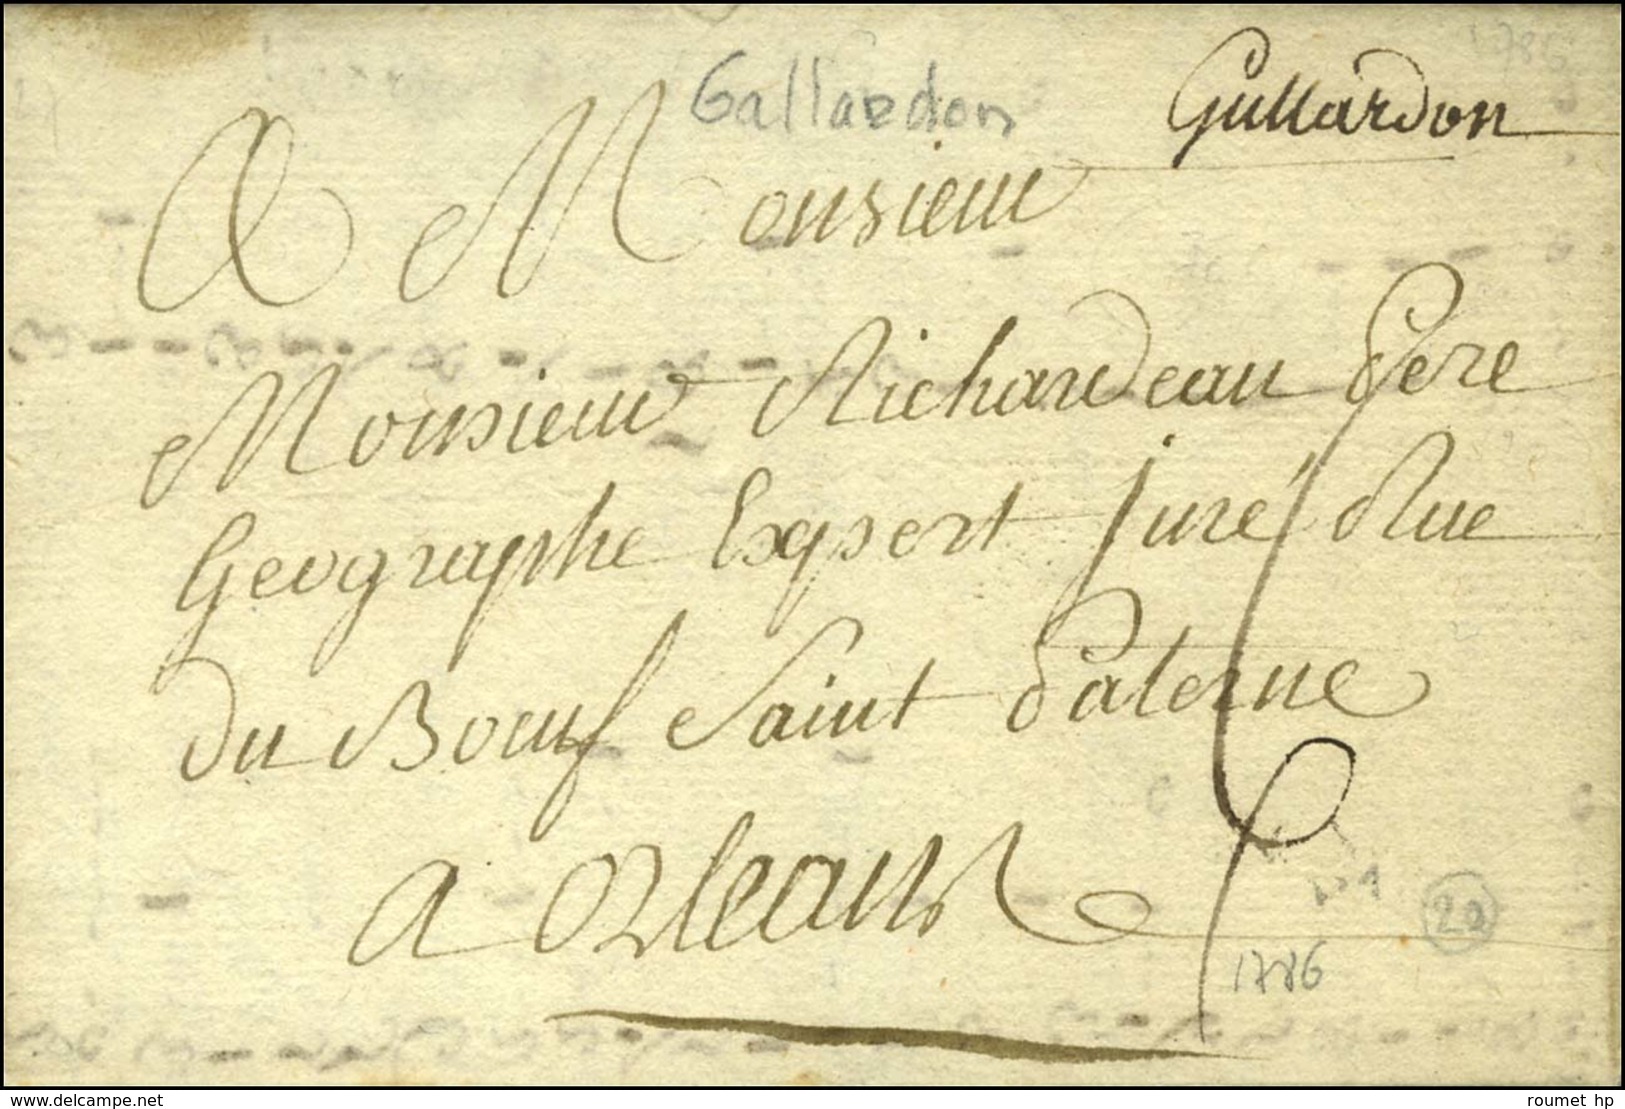 1786
Gallardon
Gallardon
A Monsieur
Monsieur Richardeau Pere
Geographe Expert juré Rue
du Boeuf Saint Paterne
a Orleans
20
1786
www.delcampe.net
roumet hp